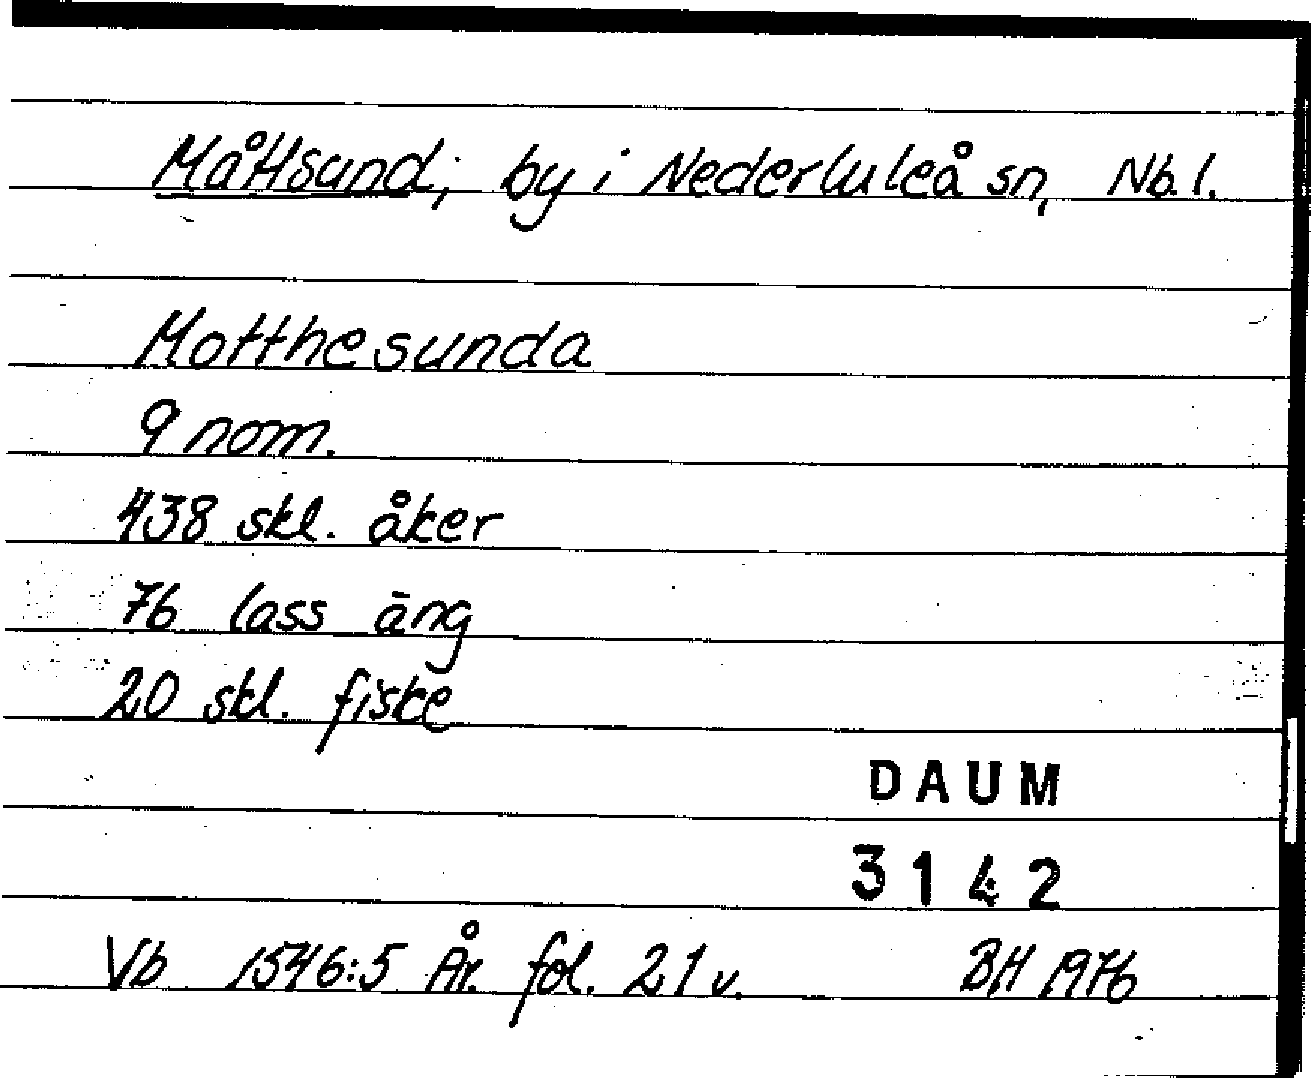 Måttsund, by i Nederluleå sn, Nb. l.
Motthesunda
9 nom.
438 skl. åker
76 lass äng
20 skl. fiske
DAUM
3142
Vb 1546:5 År. fol. 21 v. BH 1976